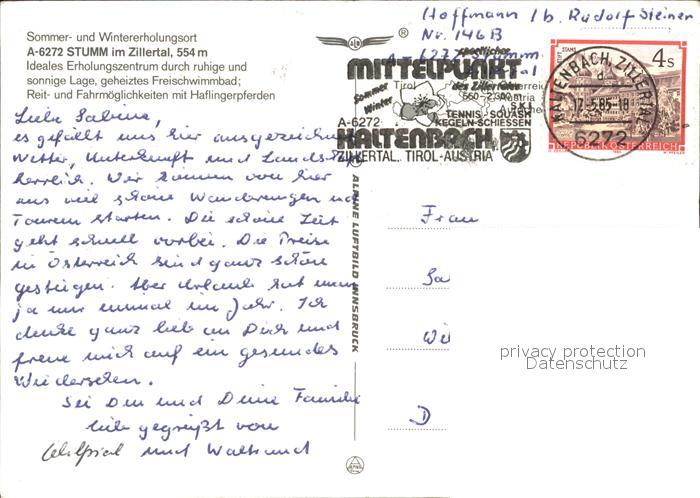 Sommer- und Wintererholungsort
A-6272 STUMM im Zillertal, 554 m
Ideales Erholungszentrum durch ruhige und
sonnige Lage, geheiztes Freischwimmbad;
Reit- und Fahrmöglichkeiten mit Haflingerpferden
Liebe Sabina,
es gefällt uns hier ausgezeichnet
Wetter, Unterkunft und Landsch
herrlich. Wir können von hier
aus viel schöne Wanderungen und
Touren starten. Die schöne Zeit
geht schnell vorbei. Die Preise
in Österreich sind ganz schön
gestiegen. Aber Urlaub hat man
ja nur einmal im Jahr. Ich
denke ganz lieb an Dich und
freue mich auf ein gesundes
Wiedersehen.
Sei Du und Deine Familie
lieb gegrüßt von
Wilfried und Waltraud
ALPINE LUFTBILD INNSBRUCK
Hoffmann / b. Rudolf Steiner
Nr. 146 B
A-6272 Stumm
Tirol
Österreich
Austria
sportlicher
MITTELPUNKT
des Zillertales
Sommer
Winter
560-2300
SKI
TENNIS-SQUASH
KEGELN-SCHIESSEN
A-6272
KALTENBACH
ZILLERTAL, TIROL-AUSTRIA
KALTENBACH, ZILLERTAL
d
17.5.85-18
6272
STIFT STAMS
4 S
REPUBLIK ÖSTERREICH
Frau
Sa
Wi
D
privacy protection
Datenschutz